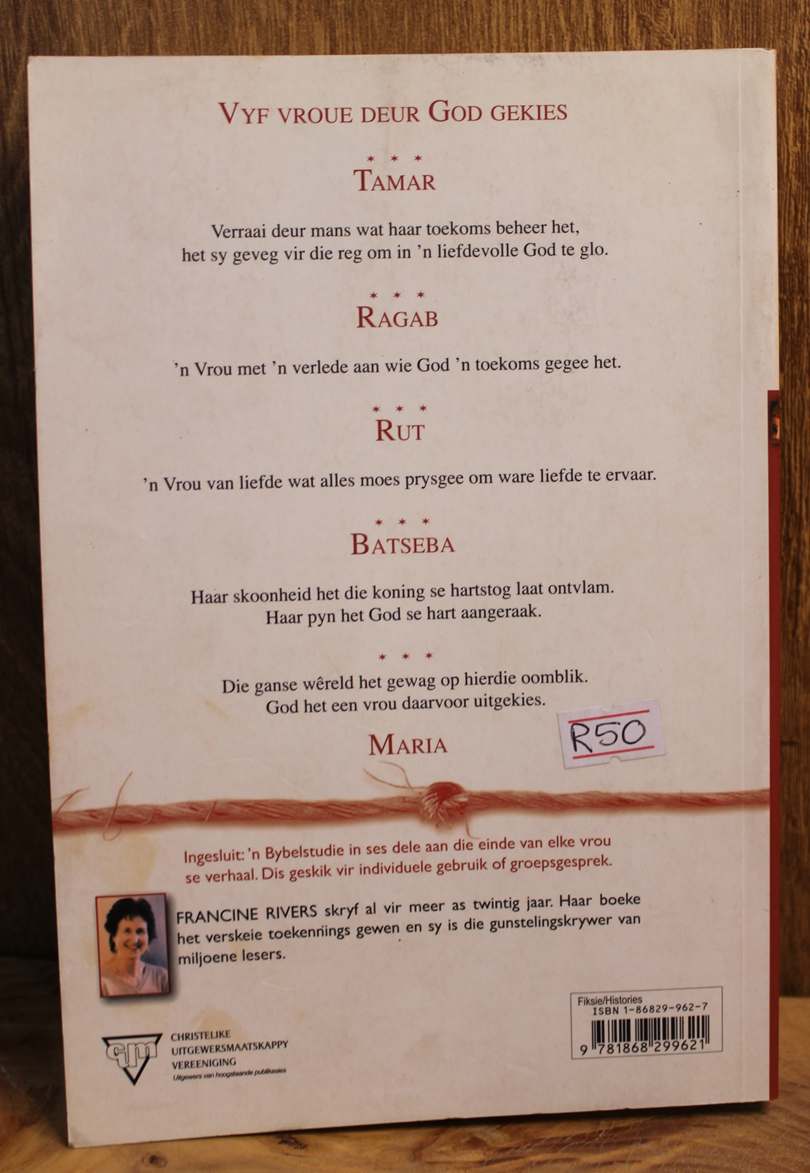 VYF VROUE DEUR GOD GEKIES
* * *
TAMAR
Verraai deur mans wat haar toekoms beheer het,
het sy geveg vir die reg om in 'n liefdevolle God te glo.
* * *
RAGAB
'n Vrou met 'n verlede aan wie God 'n toekoms gegee het.
* * *
RUT
'n Vrou van liefde wat alles moes prysgee om ware liefde te ervaar.
* * *
BATSEBA
Haar skoonheid het die koning se hartstog laat ontvlam.
Haar pyn het God se hart aangeraak.
* * *
Die ganse wêreld het gewag op hierdie oomblik.
God het een vrou daarvoor uitgekies.
R50
MARIA
Ingesluit: 'n Bybelstudie in ses dele aan die einde van elke vrou
se verhaal. Dis geskik vir individuele gebruik of groepsgesprek.
FRANCINE RIVERS skryf al vir meer as twintig jaar. Haar boeke
het verskeie toekennings gewen en sy is die gunstelingskrywer van
miljoene lesers.
Fiksie/Histories
ISBN 1-86829-962-7
9 781868 299621
CUM
CHRISTELIKE
UITGEWERSMAATSKAPPY
VEREENIGING
Uitgewers van hoogstaande publikasies